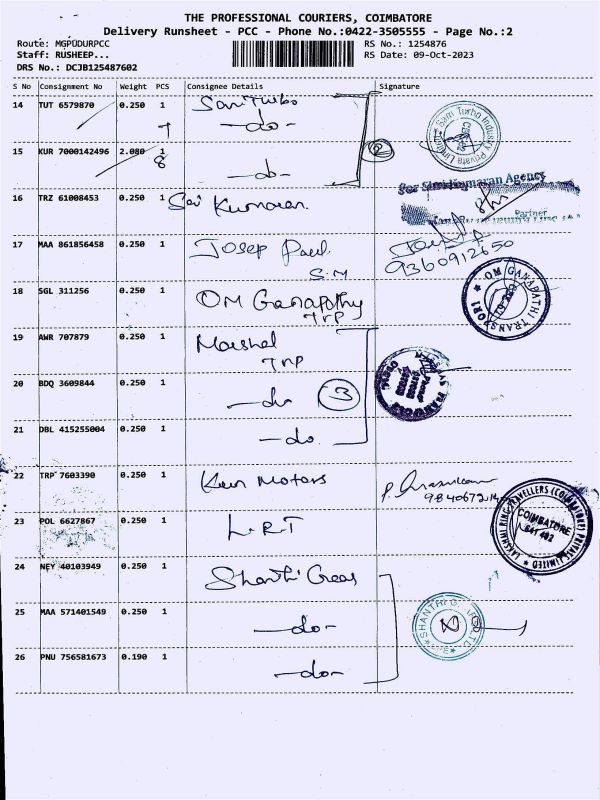 THE PROFESSIONAL COURIERS, COIMBATORE
Delivery Runsheet - PCC - Phone No.:0422-3505555 - Page No.:2
Route: MGPUDURPCC RS No.: 1254876
Staff: RUSHEEP... RS Date: 09-Oct-2023
DRS No.: DCJB125487602
S No Consignment No Weight PCS Consignee Details Signature
14 TUT 6579870 0.250 1 Sani Turbo
—do—
15 KUR 7000142496 2.080 1
8 —do—
16 TRZ 61008453 0.250 1 Sai Kumaran.
Partner
17 MAA 861856458 0.250 1 Josep Paul
S.M 9360912650
18 SGL 311256 0.250 1 OM Ganapathy
TrP
OM GANAPATHI TRANSPORT
19 AWR 707879 0.250 1 Marshal
TrP
20 BDQ 3609844 0.250 1 —do 3
21 DBL 415255004 0.250 1 —do.
22 TRP 7603390 0.250 1 Ken Motors
23 POL 6627867 0.250 1 L.R.T
COIMBATORE
641 402
24 NEY 40103949 0.250 1 Shanthi Gears
25 MAA 571401549 0.250 1 —do—
SHANTHI GEARS
26 PNU 756581673 0.190 1 —do—